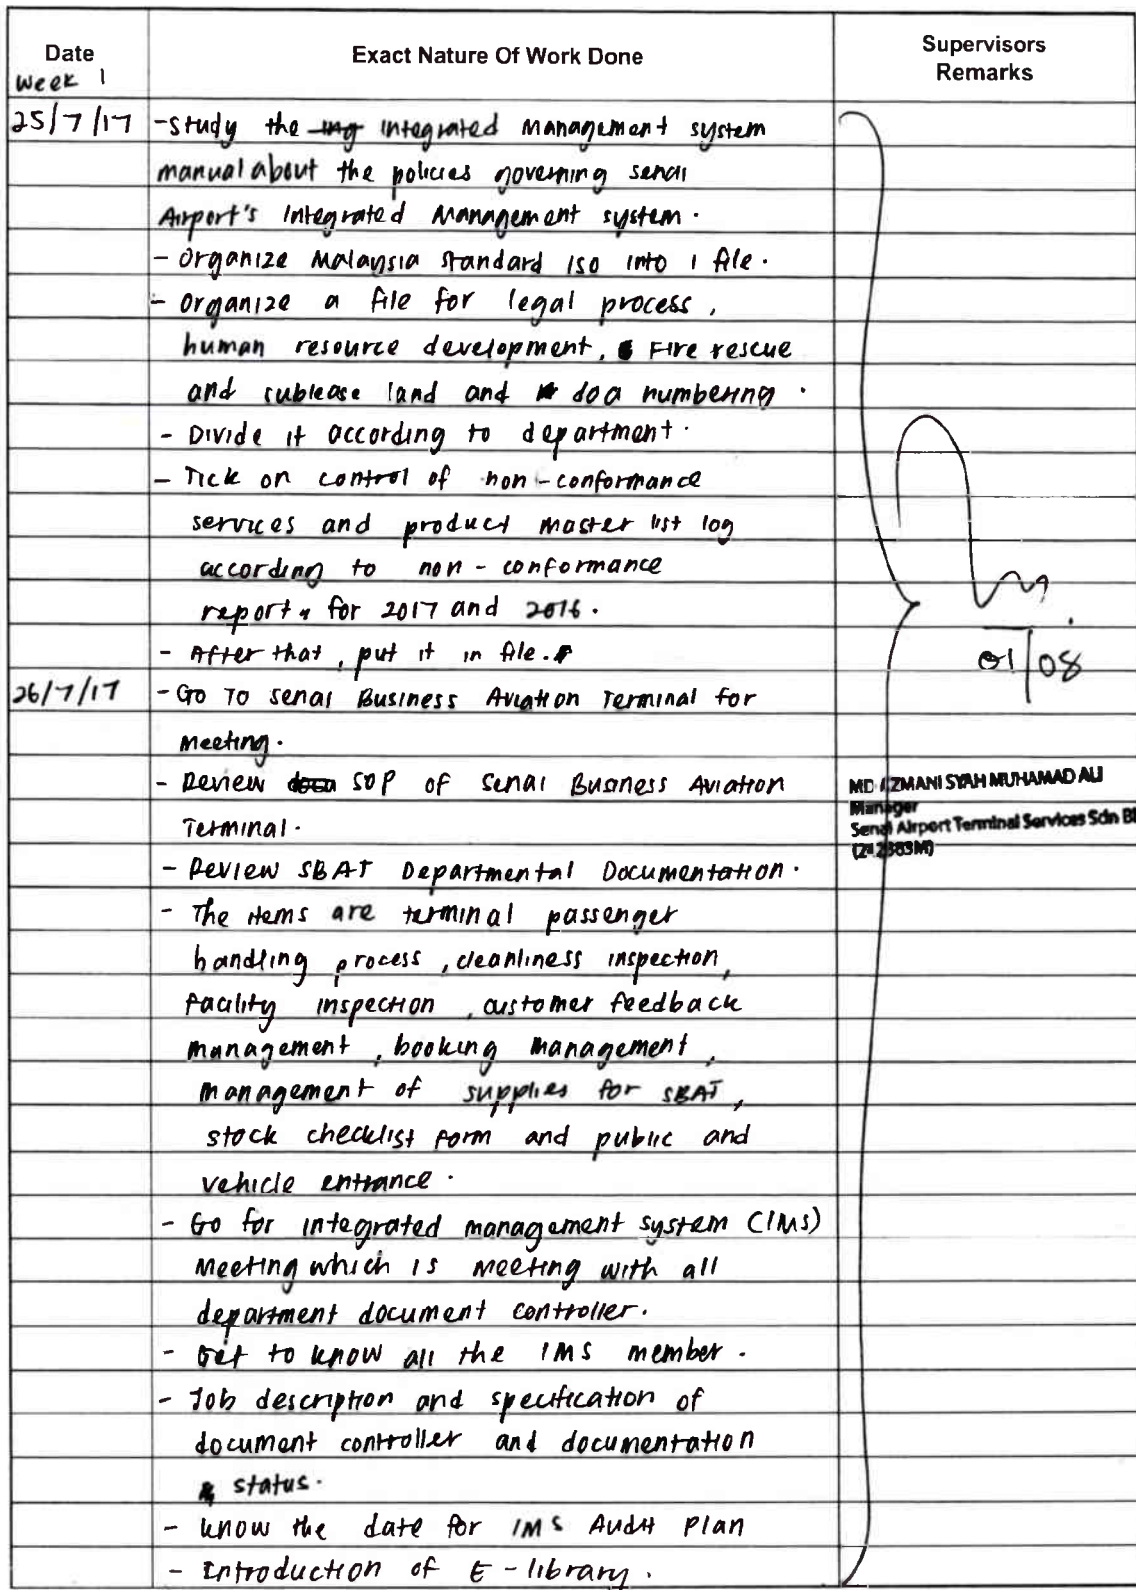 Date
Week 1
Exact Nature Of Work Done
Supervisors
Remarks
25/7/17
- Study the integrated Management system
manual about the policies governing senai
Airport's Integrated Management system.
- Organize Malaysia Standard ISO into 1 file.
- Organize a file for legal process,
human resource development, Fire rescue
and sublease land and doa numbering.
- Divide it according to department.
- Tick on control of non-conformance
services and product master list log
according to non-conformance
report for 2017 and 2016.
- After that, put it in file.
01/08
26/7/17
- Go To Senai Business Aviation Terminal for
Meeting.
- Review SOP of Senai Business Aviation
Terminal.
MD AZMANI SYAH MUHAMAD ALI
Manager
Senai Airport Terminal Services Sdn
- Review SBAT Departmental Documentation.
- The items are terminal passenger
handling process, cleanliness inspection,
facility inspection, customer feedback
management, booking management,
management of supplies for SBAT,
stock checklist form and public and
vehicle entrance.
- Go for integrated management system (IMS)
Meeting which is meeting with all
department document controller.
- Get to know all the IMS member.
- Job description and specification of
document controller and documentation
status.
- Know the date for IMS Audit Plan
- Introduction of E-library.